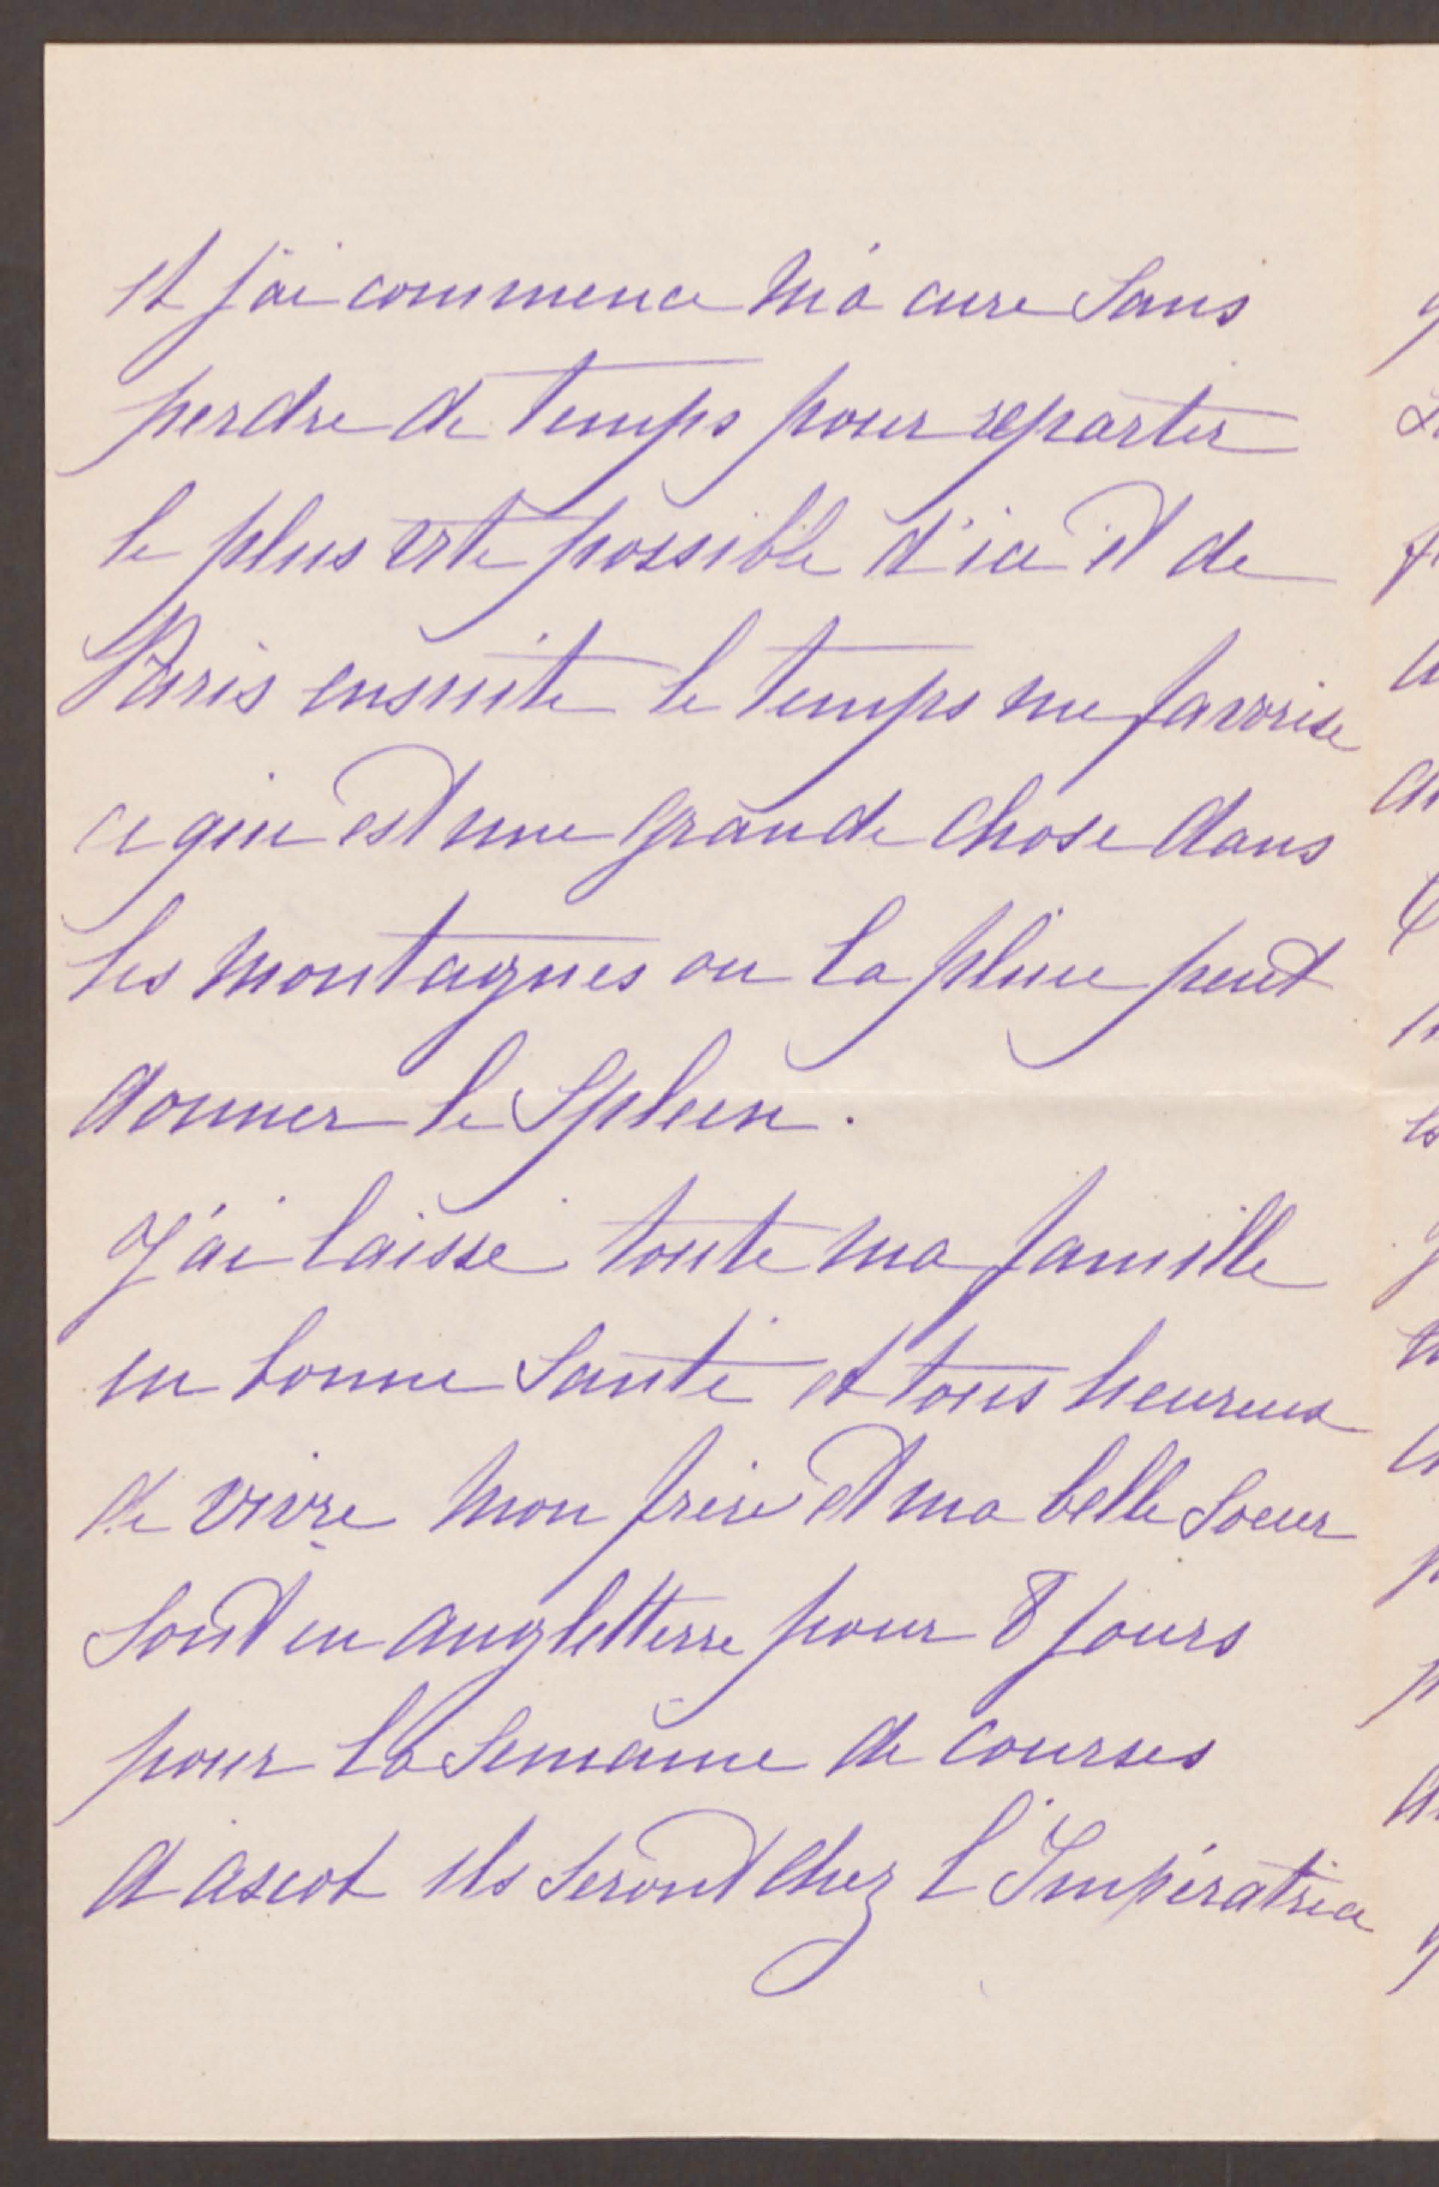 et j'ai commence ma cure Sans
perdre de temps pour repartir
le plus vite possible d'ici et de
Paris ensuite le temps me favorise
ce qui est une grande chose dans
les montagnes ou la pluie peut
donner le Spleen.
J'ai laisse toute ma famille
en bonne Santé et tous heureux
de vivre mon frere et ma belle Soeur
Sont en angletterre pour 8 jours
pour la Semaine de courses
d'ascot ils Seront chez L'Impératrice